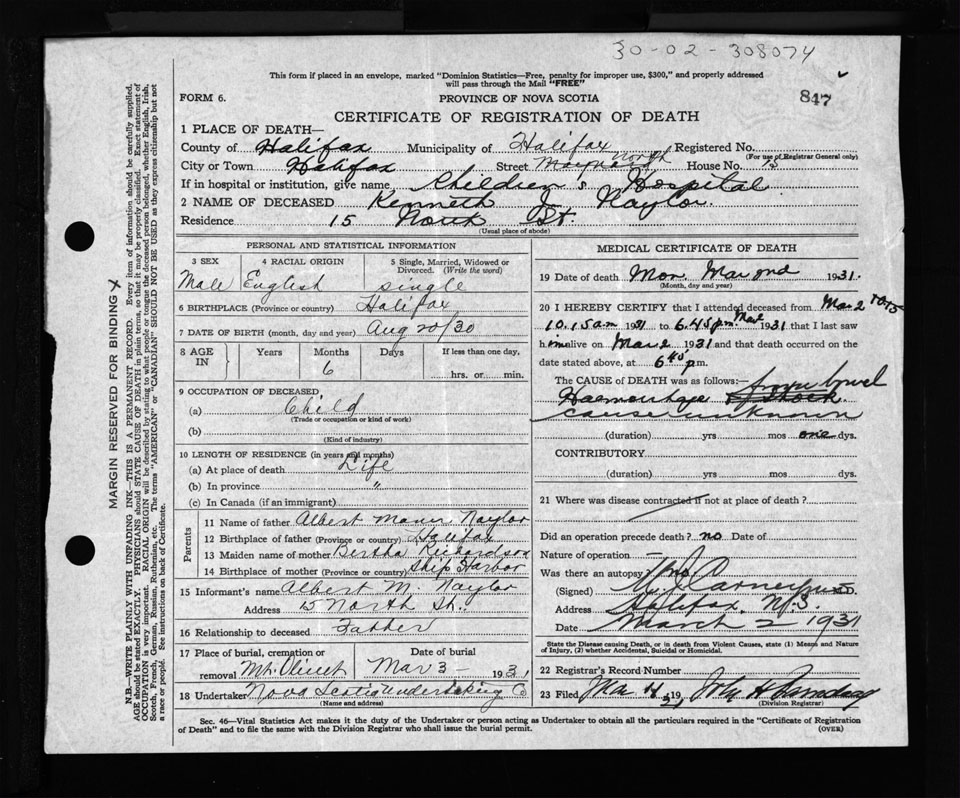 30-02-308074
This form if placed in an envelope, marked "Dominion Statistics—Free, penalty for improper use, $300," and properly addressed
will pass through the Mail "FREE"
FORM 6.
PROVINCE OF NOVA SCOTIA
847
CERTIFICATE OF REGISTRATION OF DEATH
1 PLACE OF DEATH—
County of Halifax Municipality of Halifax Registered No.
(For use of Registrar General only)
City or Town Halifax Street Maynard North House No.
If in hospital or institution, give name Children's Hospital
2 NAME OF DECEASED Kenneth J. Naylor.
Residence 15 North St.
(Usual place of abode)
PERSONAL AND STATISTICAL INFORMATION
3 SEX 4 RACIAL ORIGIN 5 Single, Married, Widowed or
Divorced. (Write the word)
Male English single
6 BIRTHPLACE (Province or country) Halifax
7 DATE OF BIRTH (month, day and year) Aug 20/30
8 AGE IN Years Months Days If less than one day,
6 hrs. or min.
9 OCCUPATION OF DECEASED
(a) Child
(Trade or occupation or kind of work)
(b)
(Kind of industry)
10 LENGTH OF RESIDENCE (in years and months)
(a) At place of death Life
(b) In province "
(c) In Canada (if an immigrant)
Parents
11 Name of father Albert Naylor
12 Birthplace of father (Province or country) Halifax
13 Maiden name of mother Bertha Richardson
14 Birthplace of mother (Province or country) Ship Harbor
15 Informant's name Albert M. Naylor
Address 15 North St.
16 Relationship to deceased Father
17 Place of burial, cremation or removal Mt. Olivet
Date of burial Mar 3 - 1931
18 Undertaker Nova Scotia Undertaking Co
(Name and address)
MEDICAL CERTIFICATE OF DEATH
19 Date of death Mon. Mar 2nd 1931.
(Month, day and year)
20 I HEREBY CERTIFY that I attended deceased from Mar 2 10.15
10.15 am 1931 to 6.45 pm Mar 2 1931 that I last saw
him alive on Mar 2 1931 and that death occurred on the
date stated above, at 6 45 p.m.
The CAUSE OF DEATH was as follows:— from bowel
Haemorrhage & Shock
cause unknown
(duration) yrs mos one dys.
CONTRIBUTORY
(duration) yrs. mos. dys.
21 Where was disease contracted if not at place of death?
Did an operation precede death? no Date of
Nature of operation —
Was there an autopsy? no
(Signed) M.D.
Address Halifax, N.S.
Date March 2 - 1931
State the Disease causing Death, or in death from Violent Causes, state (1) Means and Nature
of Injury, (2) whether Accidental, Suicidal or Homicidal.
22 Registrar's Record Number
23 Filed Mar 4 1931 John H
(Division Registrar)
Sec. 46—Vital Statistics Act makes it the duty of the Undertaker or person acting as Undertaker to obtain all the particulars required in the "Certificate of Registration
of Death" and to file the same with the Division Registrar who shall issue the burial permit.
(OVER)
MARGIN RESERVED FOR BINDING
N.B.—WRITE PLAINLY WITH UNFADING INK—THIS IS A PERMANENT RECORD. Every item of information should be carefully supplied.
AGE should be stated EXACTLY. PHYSICIANS should STATE CAUSE OF DEATH in plain terms, so that it may be properly classified. Exact statement of
OCCUPATION is very important. RACIAL ORIGIN will be described by stating to what people or tongue the deceased person belonged, whether English, Irish,
Scotch, French, German, Russian, Ruthenian, etc. The terms "AMERICAN" or "CANADIAN" SHOULD NOT BE USED as they express citizenship but not
a race or people. See instructions on back of Certificate.